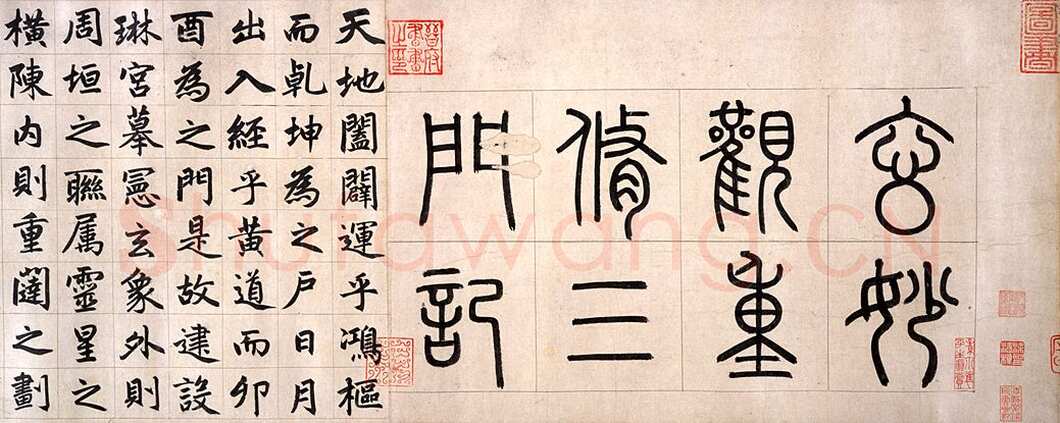 玄妙
觀重
脩三
門記
天地闔闢運乎鴻樞
而乹坤為之戶日月
出入經乎黃道而卯
酉為之門是故建設
琳宮摹憲玄象外則
周垣之聯属靈星之
橫陳内則重闥之劃
晉府書畫之印
Shufawang.CN